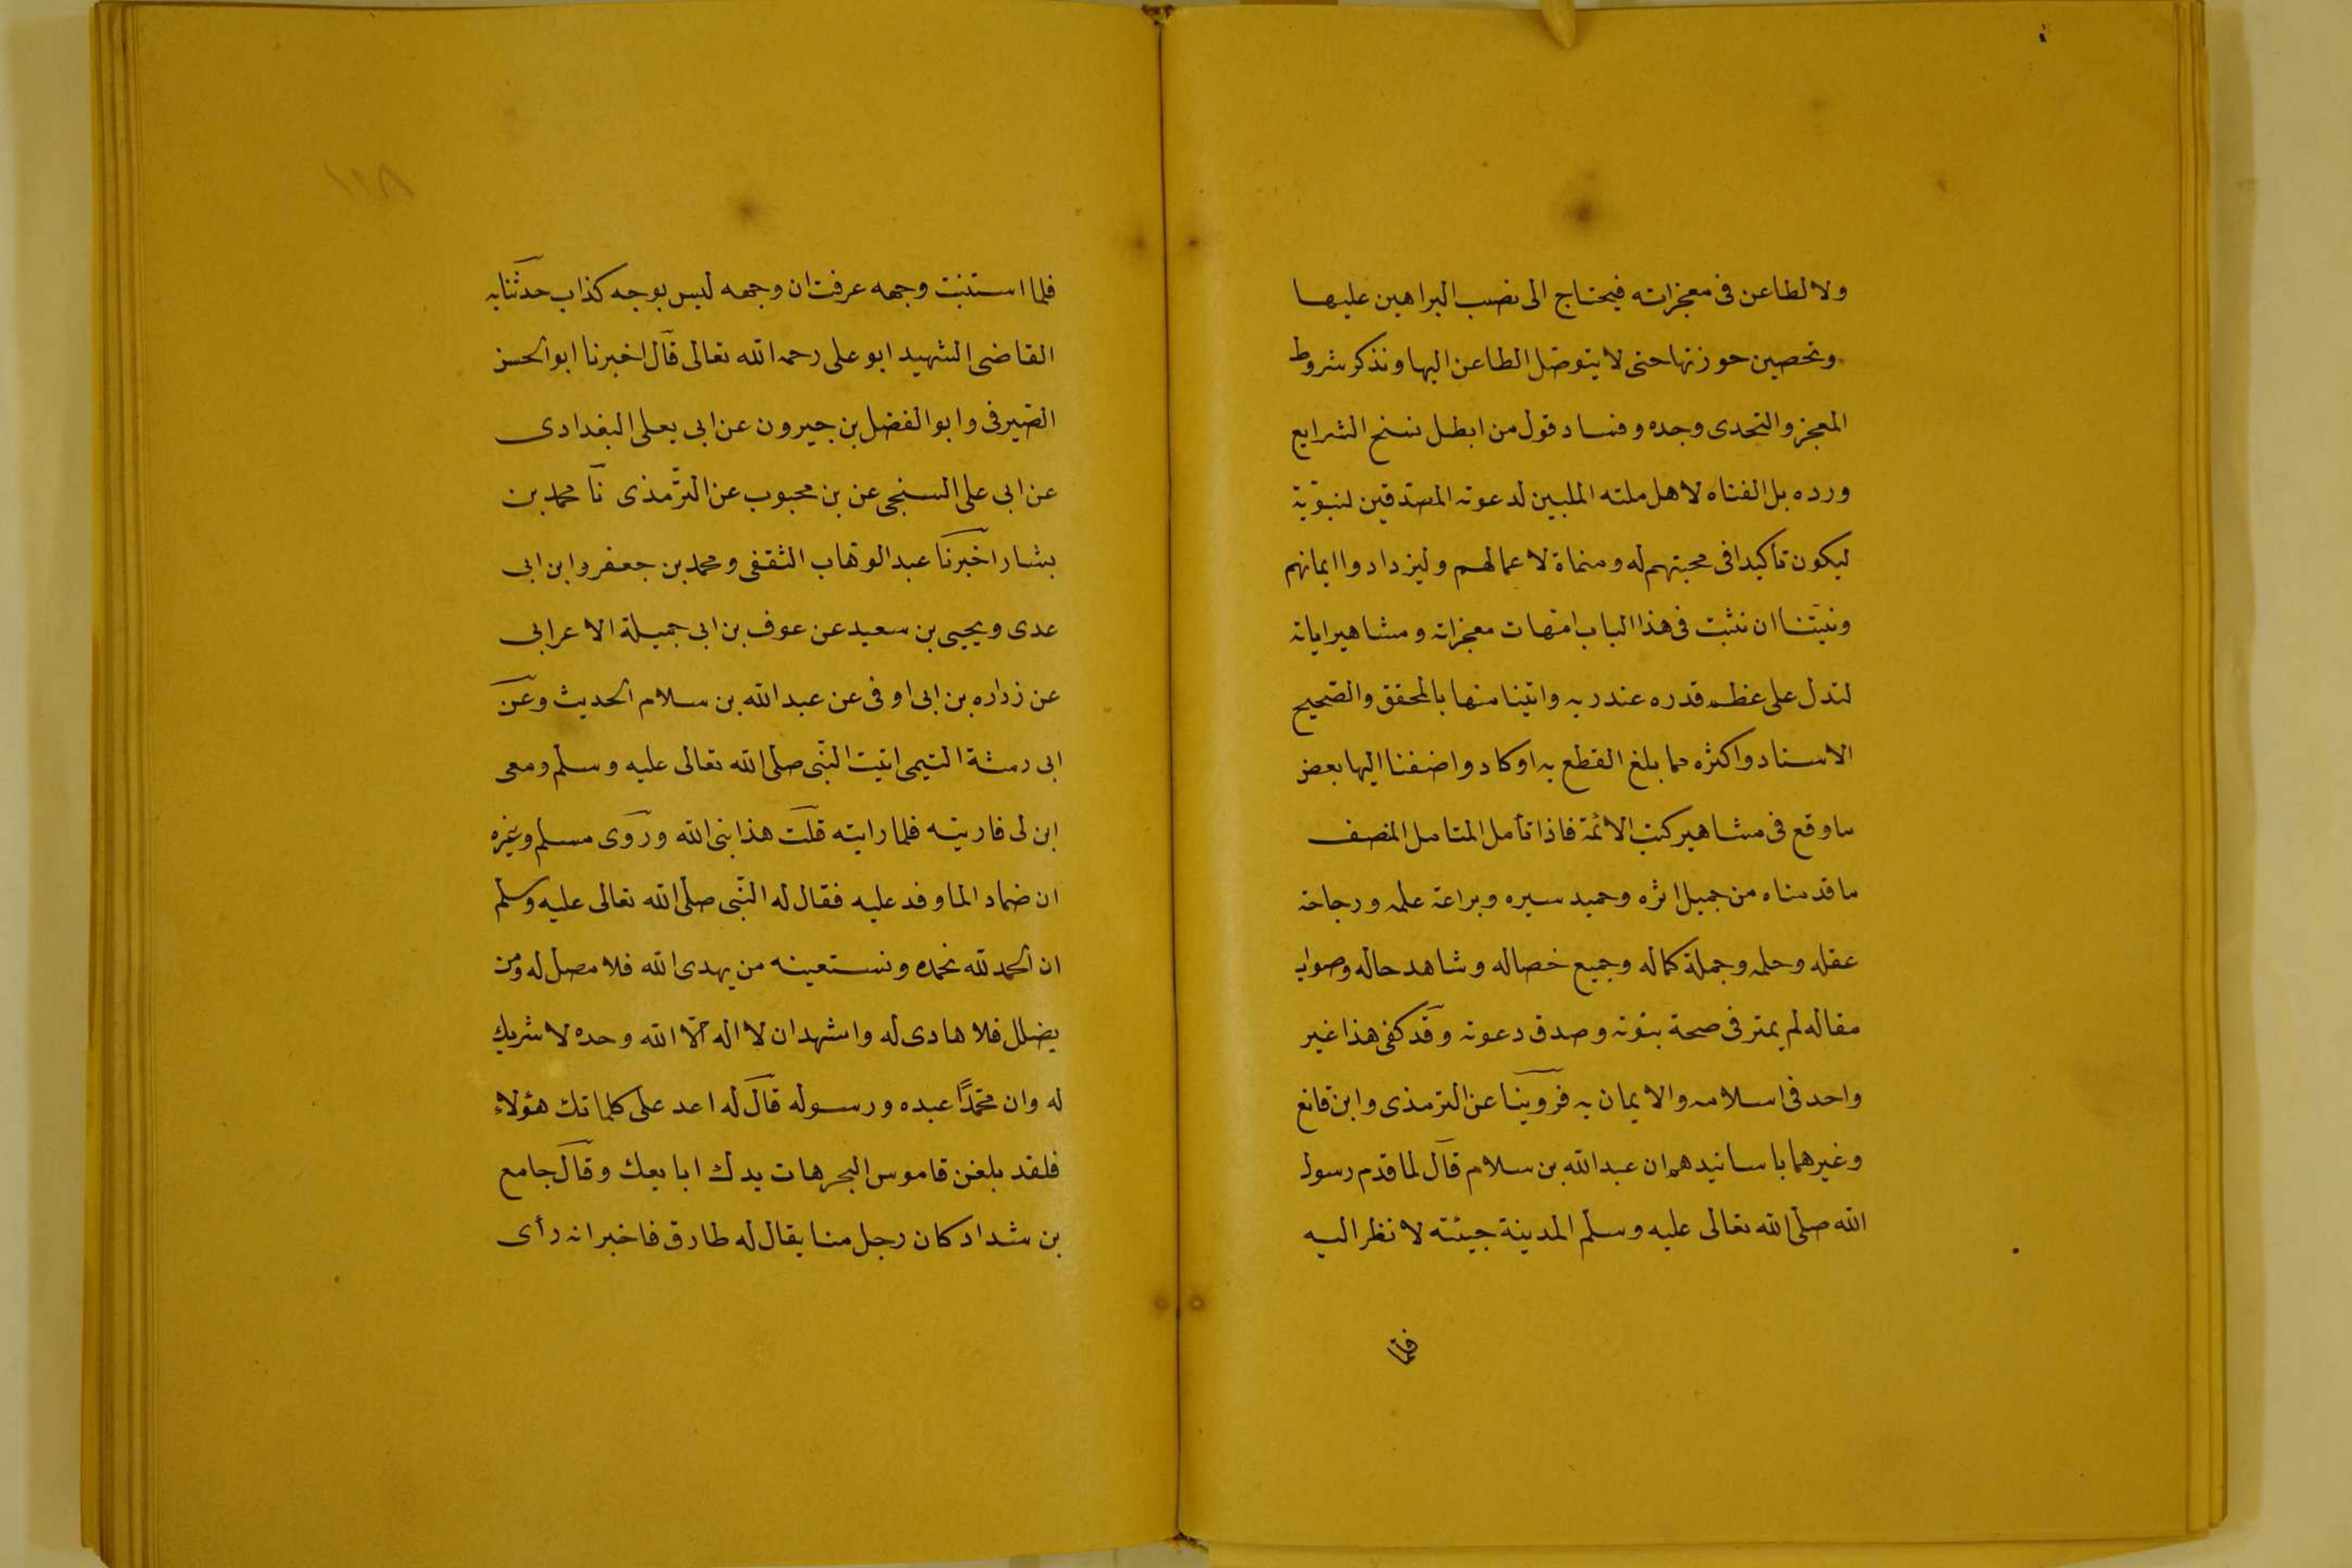 ولا لطاعن فى معجزاته فيحتاج الى نصب البراهين عليها
وتحصين حوزتها حتى لا يتوصل الطاعن اليها ونذكر شروط
المعجز والتحدى وحده وفساد قول من ابطل نسخ الشرايع
ورده بل الفناه لاهل ملته الملبين لدعوته المصدقين لنبوّته
ليكون تأكيدا فى محبتهم له ومنماة لاعمالهم وليزدادوا ايمانهم
ونيّتنا ان نثبت فى هذا الباب امّهات معجزاته ومشاهير اياته
لتدل على عظم قدره عند ربه واتينا منها بالمحقق والصّحيح
الاسناد واكثره مما بلغ القطع به اوكاد واضفنا اليها بعض
ما وقع فى مشاهير كتب الائمّة فاذا تأمل المتامل المنصف
ما قدمناه من جميل اثره وحميد سيره وبراعة علمه ورجاحة
عقله وحلمه وجملة كماله وجميع خصاله وشاهد حاله وصواب
مقاله لم يمتر فى صحة نبوّته وصدق دعوته وقد كفى هذا غير
واحد فى اسلامه والايمان به فروينا عن الترمذى وابن قانع
وغيرهما باسانيدهم ان عبد الله بن سلام قال لما قدم رسول
الله صلّى الله تعالى عليه وسلّم المدينة جيئته لانظر اليه
فلمّا
١١٨
فلما استنبت وجهه عرفت ان وجهه ليس بوجه كذاب حدّثنا به
القاضى الشهيد ابو على رحمه الله تعالى قال اخبرنا ابو الحسن
الصّيرفى وابو الفضل بن جيرون عن ابى يعلى البغدادى
عن ابى على السنجى عن بن محبوب عن الترّمذى نا محمد بن
بشار اخبرنا عبد الوهّاب الثقفى ومحمد بن جعفر وابن ابى
عدى ويحيى بن سعيد عن عوف بن ابى جميلة الاعرابى
عن زراره بن ابى اوفى عن عبد الله بن سلام الحديث وعن
ابى رمثة التيمى اتيت النّبى صلّى الله تعالى عليه وسلّم ومعى
ابن لى فاريته فلما رايته قلت هذا نبى الله وروى مسلم وغيره
ان ضماد الما وفد عليه فقال له النّبى صلّى الله تعالى عليه وسلّم
ان الحمد لله نحمده ونستعينه من يهدى الله فلا مضل له ومن
يضلل فلا هادى له واشهد ان لا اله الّا الله وحده لا شريك
له وان محمّدًا عبده ورسوله قال له اعد على كلماتك هؤلاء
فلقد بلغن قاموس البحر هات يدك ابايعك وقال جامع
بن شداد كان رجل منا يقال له طارق فاخبر انه رأى